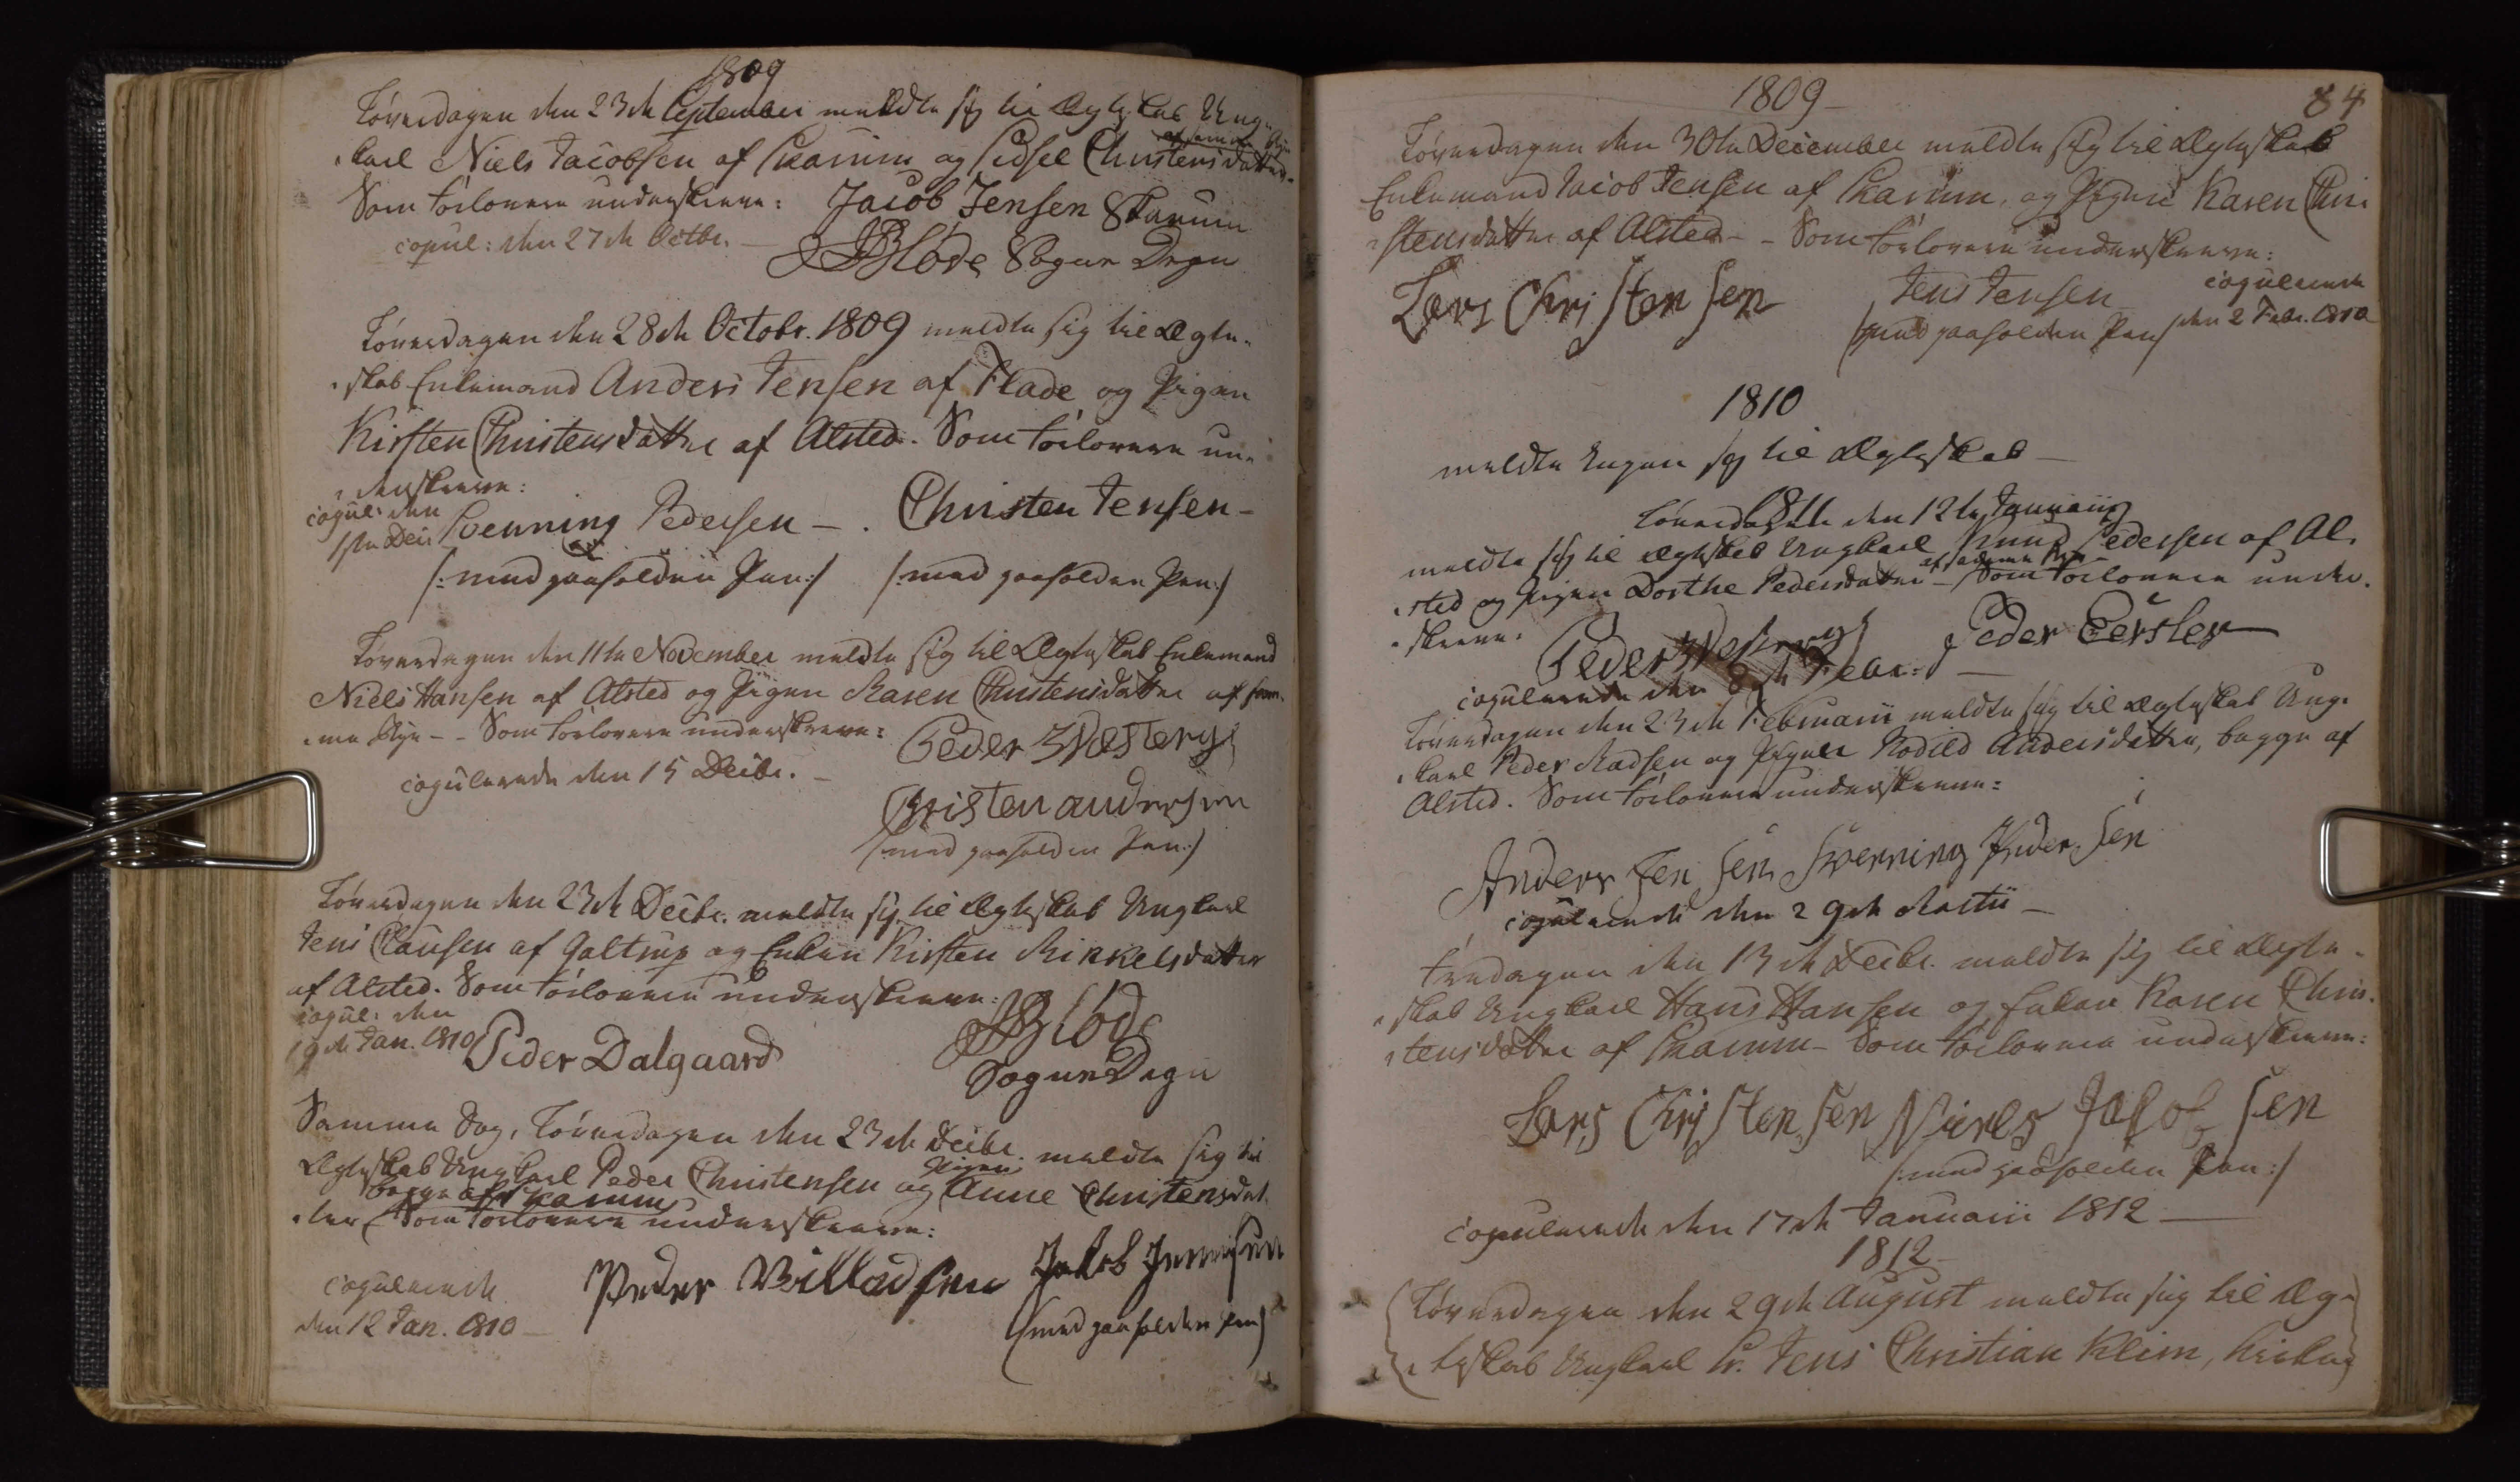 1809
Løverdagen den 23de September meldte sig til Ægteskab Ung-
karl Niels Jacobsen af Skarum og Sidsel Christensdatter
af samme Bye
Som Forlovere underskreve: Jacob Jensen Skarum
copul: den 27de Octbr. JB Klode Sogne Degn
Løverdagen den 28de Octobr. 1809 meldte sig til Ægte-
skab Enkemand Anders Jensen af Flade og Pigen
Kirsten Christensdatter af Alsted. Som Forlovere un-
derskreve:
copul: den
1ste Decr Svenning Pedersen - . Christen Jensen -
/: med paaholden Pen :/ /: med paaholden Pen :/
Løverdagen den 11te November meldte sig til Ægteskab Enkemand
Niels Hansen af Alsted og Pigen Maren Christensdatter af sam-
me Bye - - Som Forlovere underskreve: Peder Westergs
copulerede den 15 Decbr. -
Christen andersen
/: med paaholden Pen :/
Løverdagen den 23de Decbr. meldte sig til Ægteskab Ungkarl
Jens Clausen af Galtrup og Enken Kirsten Mikkelsdatter
af Alsted. Som Forlovere underskreve:
copul: den
19de Jan. 1810 Peder Dalgaard JB Klode
Sogne Degn
Samme Dag, Løverdagen den 23de Decbr. meldte sig til
Ægteskab Ungkarl Peder Christensen og Pigen Anne Christensdat-
begge af Skarum
ter Som Forlovere underskreve:
copulerede Peder Villadsen Jakob Jensen
den 12 Jan. 1810 - (med paaholden Pen)
1809 - 84
Løverdagen den 30te December meldte sig til Ægteskab
Enkemand Jacob Jensen af Skarum, og Pigen Karen Chri-
stensdatter af Alsted - - Som Forlovere underskreve:
Lars Christensen Jens Jensen copulerede
(med paaholden Pen) den 2 Febr. 1810
1810
meldte Ingen sig til Ægteskab -
1811
Løverdagen den 12te Januarii
meldte sig til Ægteskab Ungkarl Knud Pedersen af Al-
sted og Pigen Dorthe Pedersdatter af samme Bye - Som Forlovere under-
skreve: Peder Westergs Peder Eersler
copulerede den 8de Febr: -
Løverdagen den 23de Februarii meldte sig til Ægteskab Ung-
karl Peder Madsen og Pigen Bodild Andersdatter, begge af
Alsted. Som Forlovere underskreve:
Anders Jensen Svenning Pedersen
copulerede den 29de Martii -
Fredagen den 13de Decbr. meldte sig til Ægte-
skab Ungkarl Hans Hansen og Enken Karen Chri-
stensdatter af Skarum - Som Forlovere underskreve:
Lars Christensen Niels Jakobsen
/: med paaholden Pen :/
copulerede den 17de Januarii 1812 -
1812 -
Løverdagen den 29de August meldte sig til Æg-
teskab Ungkarl Hr. Jens Christian Klim,